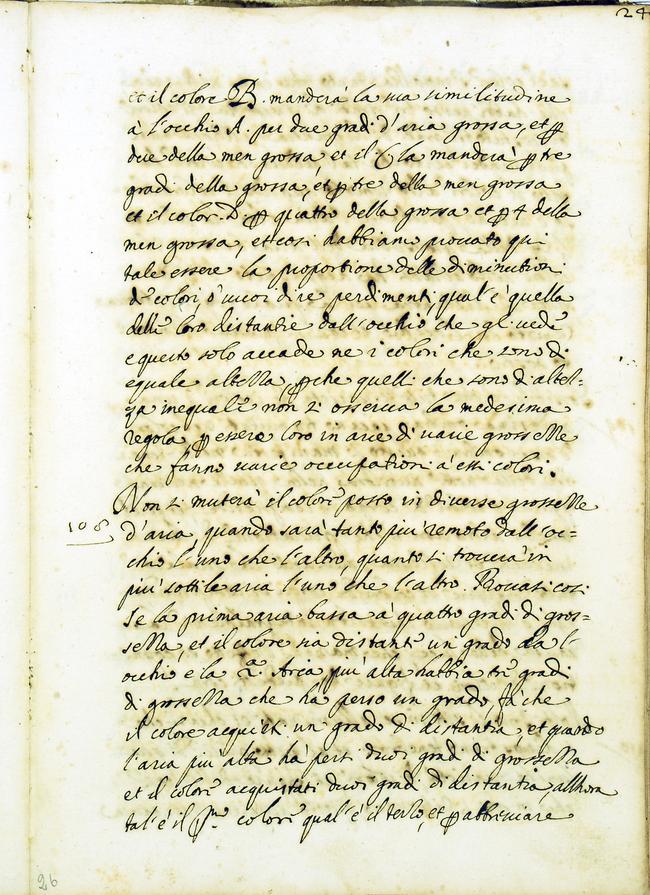 24
et il colore B. manderà la sua similitudine
à l'occhio A. per due gradi d'aria grossa, et p
due della men grossa et il C la manderà p tre
gradi della grossa, et p tre della men grossa
et il color. D p quattro della grossa et p 4 della
men grossa, et così habbiamo provato qui
tale essere la proportione delle diminutioni
de colori, ò vuoi dire perdimenti, qual'è quella
delle loro distantie dall'occhio, che gli vede
e questo solo accade ne i colori che sono di
equale altezza, p che quelli che sono d'altez=
za inequale non si osserva la medesima
regola p essere loro in arie di varie grossezze
che fanno varie occupationi à essi colori.
Non si muterà il colore posto in diverse grossezze
108 d'aria, quando sarà tanto più remoto dall'oc=
chio l'uno che l'altro, quanto si troverà in
più sottile aria l'uno che l'altro. Provasi così
Se la prima aria bassa à quattro gradi di gros=
sezza, et il colore sia distante un grado da l'
occhio e la 2.a Aria più alta habbia tre gradi
di grossezza che hà perso un grado, fà che
il colore acquisti un grado di distantia, et quando
l'aria più alta hà persi duoi gradi di grossezza
et il colore acquistati duoi gradi di distantia, allhora
tal'è il p.mo colore qual'è il terzo, et p abbreviare
26